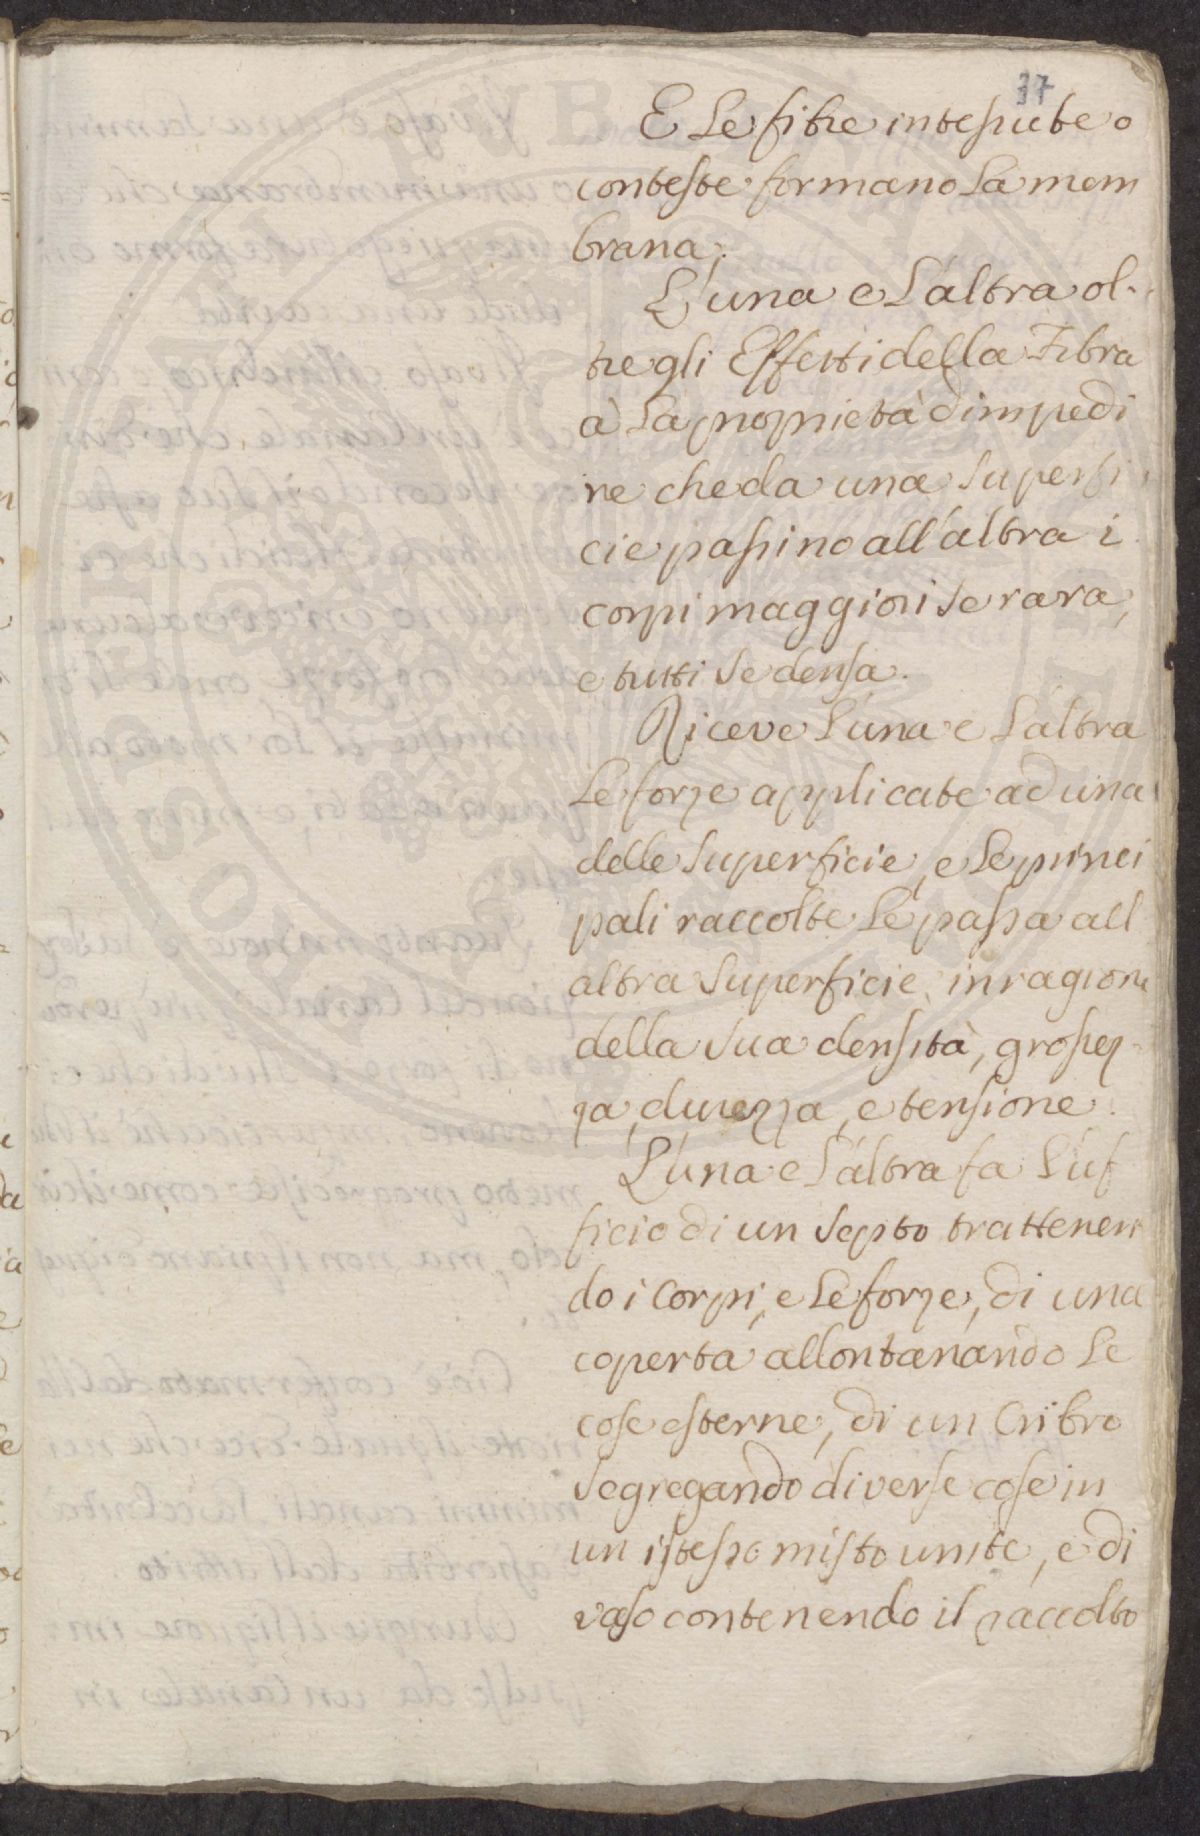 37
E le fibre intessute o
conteste formano la mem
brana.
L'una e l'altra ol-
tre gli Effetti della Fibra
à la proprietà d'impedi
re che da una superfi
cie passino all'altra i
corpi maggiori se rara,
e tutti se densa.
Riceve l'una e l'altra
le forze applicate ad una
delle superficie, e le princi
pali raccolte le passa all
altra superficie in ragione
della sua densità, grossez-
za, durezza, e tensione.
L'una e l'altra fa l'uf
ficio di un septo trattenen
do i corpi, e le forze, di una
coperta allontanando le
cose esterne, di un Cribro
segregando diverse cose in
un istesso misto unite, e di
vaso contenendo il raccolto